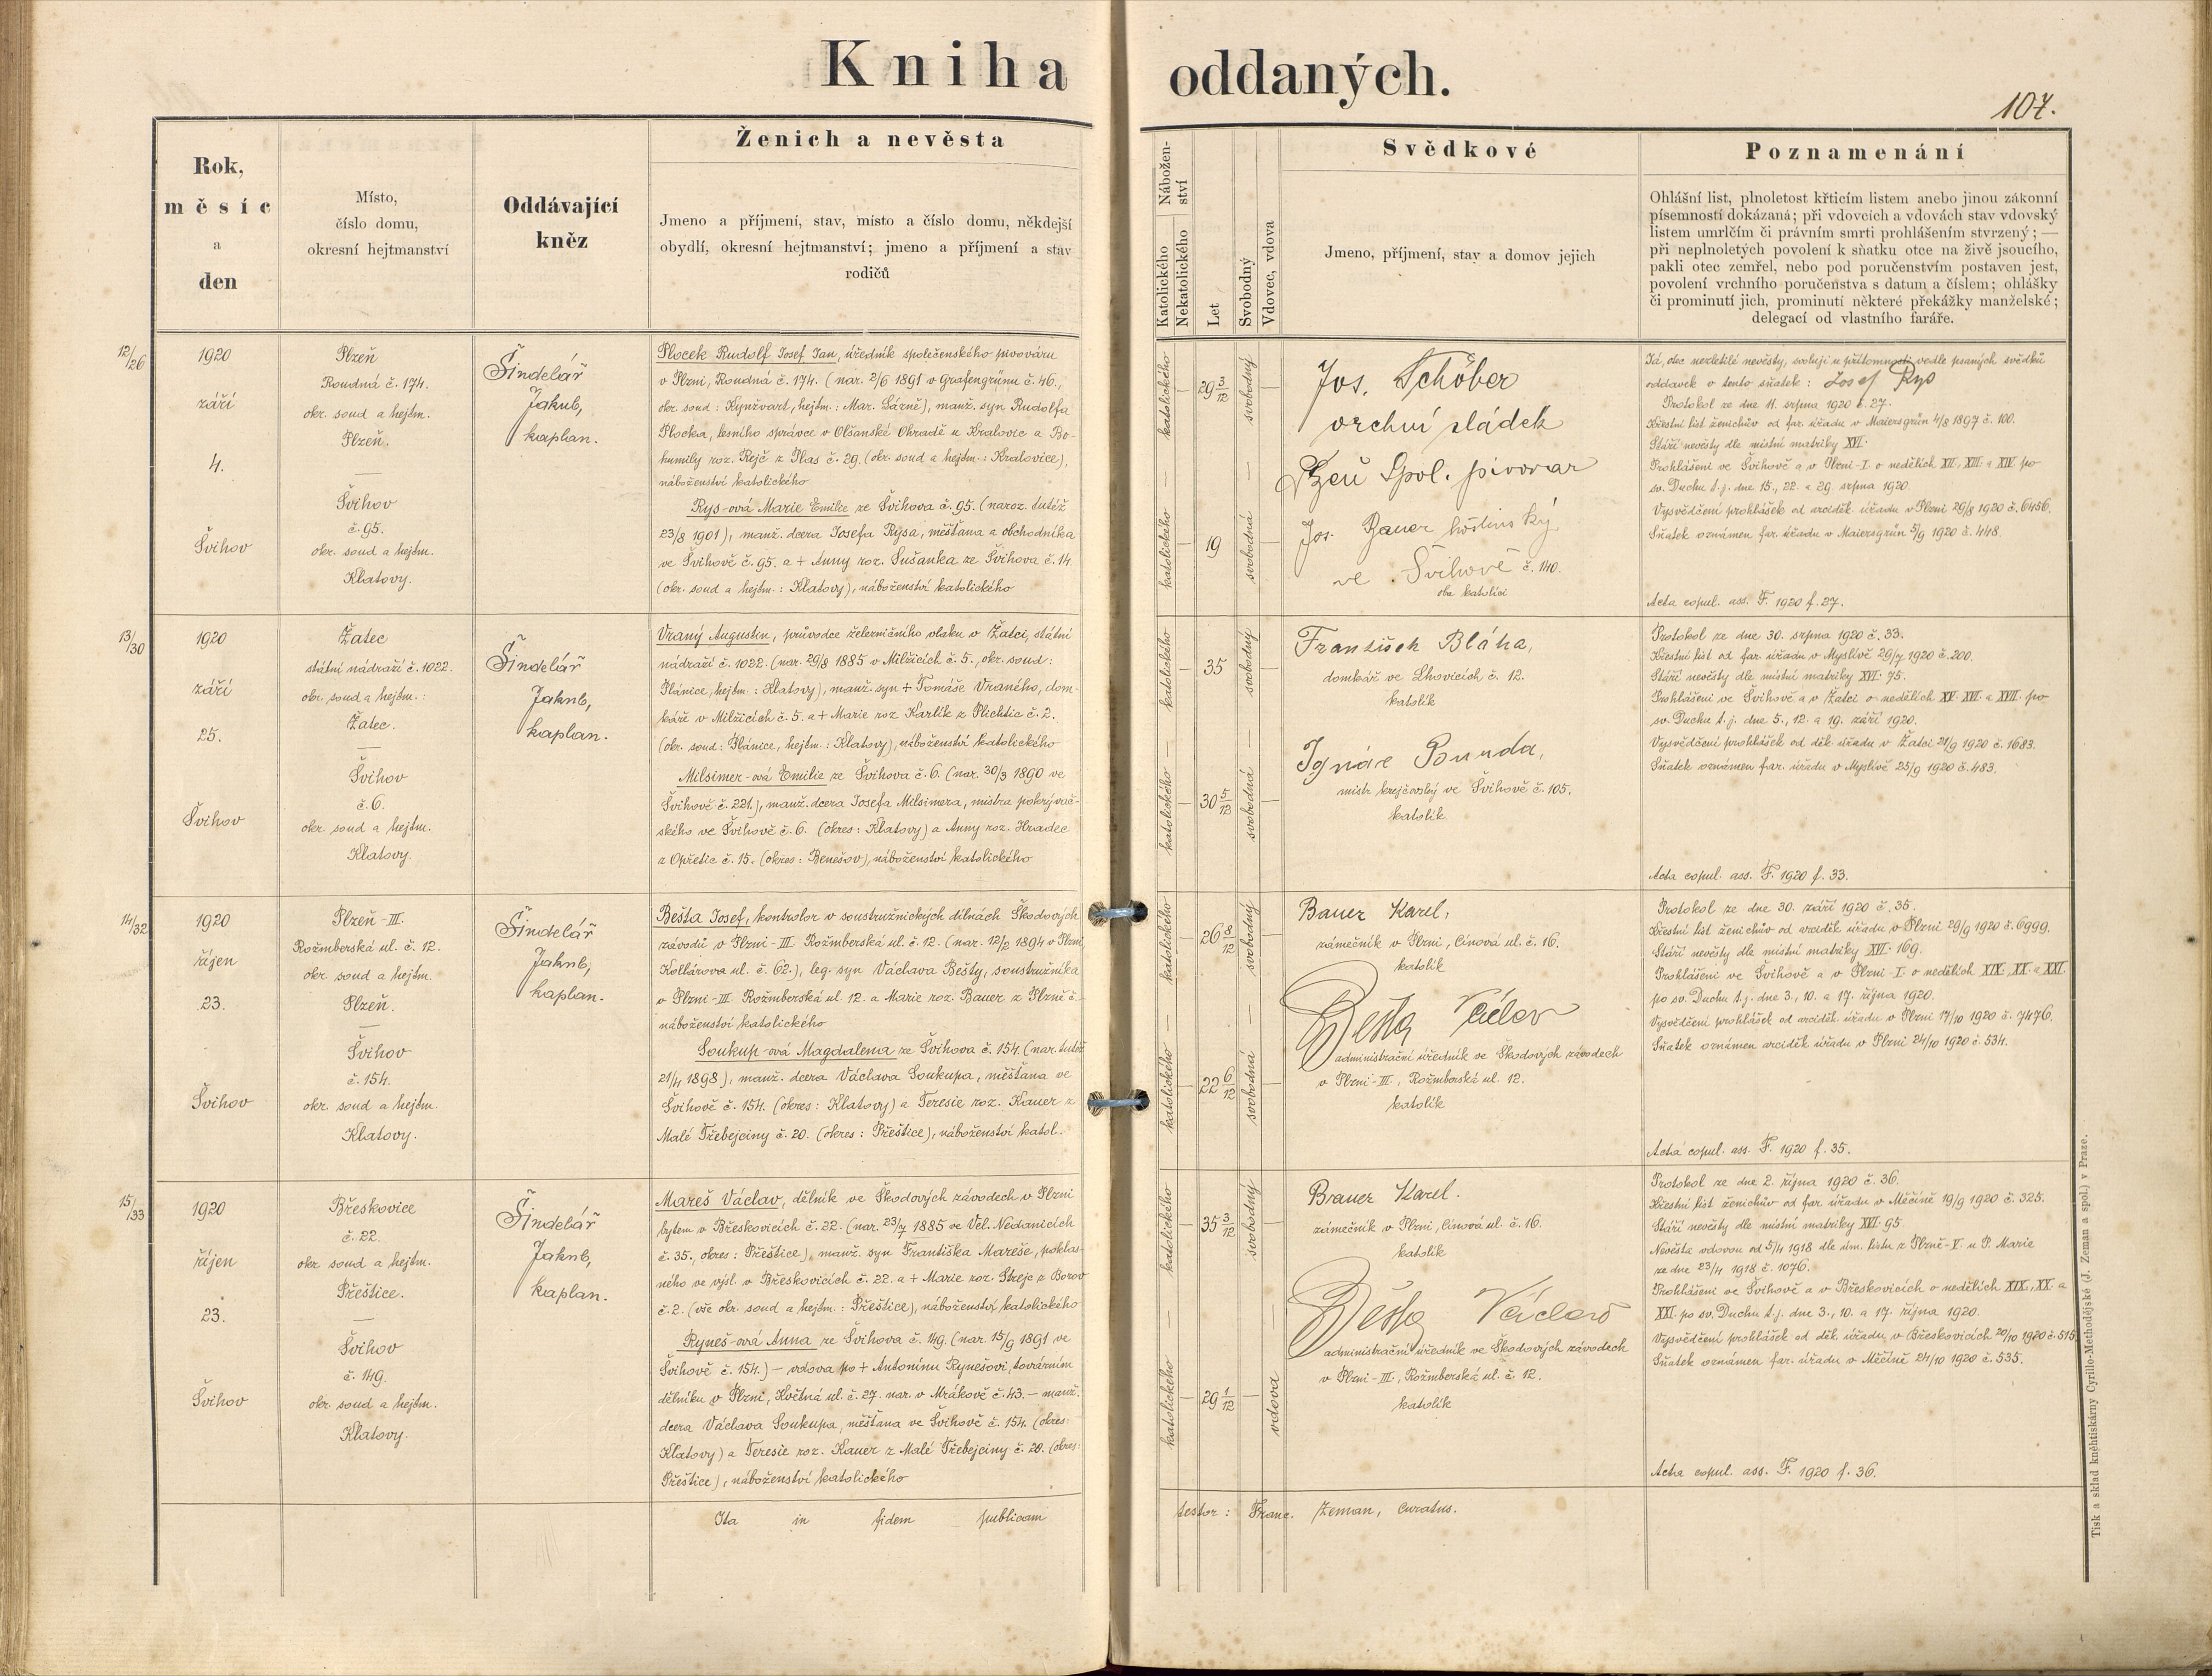 Kniha oddaných.
107.
Rok,
měsíc
a
den
Místo,
číslo domu,
okresní hejtmanství
Oddávající
kněz
Ženich a nevěsta
Jmeno a příjmení, stav, místo a číslo domu, někdejší
obydlí, okresní hejtmanství; jmeno a příjmení a stav
rodičů
Nábožen-
ství
Katolického
Nekatolického
Let
Svobodný
Vdovec, vdova
Svědkové
Jmeno, příjmení, stav a domov jejich
Poznamenání
Ohlášní list, plnoletost křticím listem anebo jinou zákonní
písemností dokázaná; při vdovcích a vdovách stav vdovský
listem umrlčím či právním smrti prohlášením stvrzený; —
při neplnoletých povolení k sňatku otce na živě jsoucího,
pakli otec zemřel, nebo pod poručenstvím postaven jest,
povolení vrchního poručenstva s datum a číslem; ohlášky
či prominutí jich, prominutí některé překážky manželské;
delegací od vlastního faráře.
12/26
1920
září
4.
Švihov
Plzeň
Roudná č. 174.
okr. soud a hejtm.
Plzeň.
—
Švihov
č. 95.
okr. soud a hejtm.
Klatovy.
Šindelář
Jakub,
kaplan.
Plocek Rudolf Josef Jan, úředník společenského pivováru
v Plzni, Roudná č. 174. (nar. 2/6 1891 v Grafengrünu č. 46.,
okr. soud: Kynžvart, hejtm.: Mar. Lázně), manž. syn Rudolfa
Plocka, lesního správce v Olšanské Ohradě u Kralovic a Bo-
humily roz. Rejč z Plas č. 29. (okr. soud a hejtm.: Kralovice),
náboženství katolického
Rys-ová Marie Emilie ze Švihova č. 95. (naroz. tutéž
23/8 1901), manž. dcera Josefa Rysa, měšťana a obchodníka
ve Švihově č. 95. a + Anny roz. Sušanka ze Švihova č. 14.
(okr. soud a hejtm.: Klatovy), náboženství katolického
katolického — 29 3/12 svobodný —
katolického — 19 svobodná —
Jos. Schöber
vrchní sládek
Plzeň Spol. pivovar
Jos. Bauer hostinský
ve Švihově č. 140.
oba katolíci
Já, otec nezletilé nevěsty, svoluji u přítomnosti vedle psaných svědků
oddavek v tento sňatek: Josef Rys
Protokol ze dne 11. srpna 1920 č. 27.
Křestní list ženichův od far. úřadu v Maiersgrün 4/8 1897 č. 100.
Stáří nevěsty dle místní matriky XVI.
Prohlášeni ve Švihově a v Plzni-I. o nedělích XII., XIII. a XIV. po
sv. Duchu t.j. dne 15., 22. a 29. srpna 1920.
Vysvědčení prohlášek od arciděk. úřadu v Plzni 29/8 1920 č. 6456.
Sňatek oznámen far. úřadu v Maiersgrün 5/9 1920 č. 448.
Acta copul. ass. F. 1920 f. 27.
13/30
1920
září
25.
Švihov
Žatec
státní nádraží č. 1022.
okr. soud a hejtm.:
Žatec.
—
Švihov
č. 6.
okr. soud a hejtm.
Klatovy.
Šindelář
Jakub,
kaplan.
Vraný Augustin, průvodce železničního vlaku v Žatci, státní
nádraží č. 1022. (nar. 29/8 1885 v Milžicích č. 5., okr. soud:
Plánice, hejtm.: Klatovy), manž. syn + Tomáše Vraného, dom-
káře v Milžicích č. 5. a + Marie roz. Karlík z Plichtic č. 2.
(okr. soud: Plánice, hejtm.: Klatovy), náboženství katolického
Milsimer-ová Emilie ze Švihova č. 6. (nar. 30/3 1890 ve
Švihově č. 221.), manž. dcera Josefa Milsimera, mistra pokrývač-
ského ve Švihově č. 6. (okres: Klatovy) a Anny roz. Hradec
z Opřetic č. 15. (okres: Benešov), náboženství katolického
katolického — 35 svobodný —
katolického — 30 5/12 svobodná —
František Bláha,
domkář ve Lhovicích č. 12.
katolík
Ignác Bunda,
mistr krejčovský ve Švihově č. 105.
katolík
Protokol ze dne 30. srpna 1920 č. 33.
Křestní list od far. úřadu v Myslívě 26/7 1920 č. 200.
Stáří nevěsty dle místní matriky XVI. 75.
Prohlášeni ve Švihově a v Žatci o nedělích XV. XVI. a XVII. po
sv. Duchu t.j. dne 5., 12. a 19. září 1920.
Vysvědčení prohlášek od děk. úřadu v Žatci 21/9 1920 č. 1683.
Sňatek oznámen far. úřadu v Myslívě 25/9 1920 č. 483.
Acta copul. ass. F. 1920 f. 33.
14/32
1920
říjen
23.
Švihov
Plzeň-III.
Rožmberská ul. č. 12.
okr. soud a hejtm.
Plzeň.
—
Švihov
č. 154.
okr. soud a hejtm.
Klatovy.
Šindelář
Jakub,
kaplan.
Bešta Josef, kontrolor v soustružnických dílnách Škodových
závodů v Plzni-III. Rožmberská ul. č. 12. (nar. 12/2 1894 v Plzni,
Kollárova ul. č. 62.), leg. syn Václava Bešty, soustružníka
v Plzni-III. Rožmberská ul. 12. a Marie roz. Bauer z Plzně č.-
náboženství katolického
Soukup-ová Magdalena ze Švihova č. 154. (nar. tutéž
21/4 1898), manž. dcera Václava Soukupa, měšťana ve
Švihově č. 154. (okres: Klatovy) a Teresie roz. Kauer z
Malé Třebejciny č. 20. (okres: Přeštice), náboženství katol.
katolického — 26 8/12 svobodný —
katolického — 22 6/12 svobodná —
Bauer Karel,
zámečník v Plzni, Cínová ul. č. 16.
katolík
Bešta Václav
administrační úředník ve Škodových závodech
v Plzni-III., Rožmberská ul. 12.
katolík
Protokol ze dne 30. září 1920 č. 35.
Křestní list ženichův od arciděk. úřadu v Plzni 29/9 1920 č. 6999.
Stáří nevěsty dle místní matriky XVI. 169.
Prohlášeni ve Švihově a v Plzni-I. o nedělích XIX., XX. a XXI.
po sv. Duchu t.j. dne 3., 10. a 17. října 1920.
Vysvědčení prohlášek od arciděk. úřadu v Plzni 17/10 1920 č. 7476.
Sňatek oznámen arciděk. úřadu v Plzni 24/10 1920 č. 534.
Acta copul. ass. F. 1920 f. 35.
15/33
1920
říjen
23.
Švihov
Břeskovice
č. 22.
okr. soud a hejtm.
Přeštice.
—
Švihov
č. 149.
okr. soud a hejtm.
Klatovy.
Šindelář
Jakub,
kaplan.
Mareš Václav, dělník ve Škodových závodech v Plzni
bytem v Břeskovicích č. 22. (nar. 23/7 1885 ve Vel. Nedanicích
č. 35., okres: Přeštice), manž. syn Františka Mareše, poklas-
ného ve výsl. v Břeskovicích č. 22. a + Marie roz. Strejc z Borov
č. 2. (vše okr. soud a hejtm.: Přeštice), náboženství katolického
Ryneš-ová Anna ze Švihova č. 149. (nar. 15/9 1891 ve
Švihově č. 154.) — vdova po + Antonínu Rynešovi, továrním
dělníku v Plzni, Květná ul. č. 27. nar. v Mrákově č. 43. — manž.
dcera Václava Soukupa, měšťana ve Švihově č. 154. (okres:
Klatovy) a Teresie roz. Kauer z Malé Třebejciny č. 20. (okres:
Přeštice), náboženství katolického
katolického — 35 3/12 svobodný —
katolického — 29 1/12 — vdova
Brauer Karel.
zámečník v Plzni, Cínová ul. č. 16.
katolík
Bešta Václav
administrační úředník ve Škodových závodech
v Plzni-III., Rožmberská ul. č. 12.
katolík
Protokol ze dne 2. října 1920 č. 36.
Křestní list ženichův od far. úřadu v Měčíně 19/9 1920 č. 325.
Stáří nevěsty dle místní matriky XVI. 95.
Nevěsta vdovou od 5/4 1918 dle úm. listu z Plzně-V. u P. Marie
ze dne 23/4 1918 č. 1076.
Prohlášeni ve Švihově a v Břeskovicích o nedělích XIX., XX. a
XXI. po sv. Duchu t.j. dne 3., 10. a 17. října 1920.
Vysvědčení prohlášek od děk. úřadu v Břeskovicích 20/10 1920 č. 515.
Sňatek oznámen far. úřadu v Měčíně 24/10 1920 č. 535.
Acta copul. ass. F. 1920 f. 36.
Ita in fidem publicam testor: Franc. Zeman, Curatus.
Tisk a sklad kněhtiskárny Cyrillo-Methodějské (J. Zeman a spol.) v Praze.